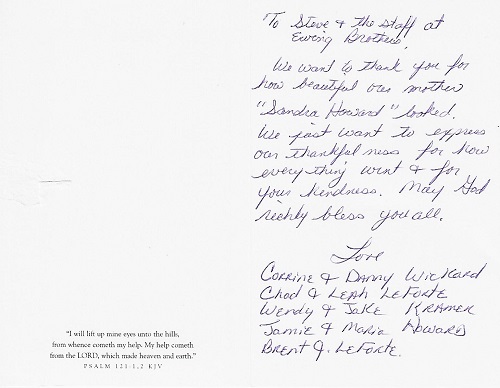 "I will lift up mine eyes unto the hills,
from whence cometh my help. My help cometh
from the LORD, which made heaven and earth."
PSALM 121:1,2 KJV
To Steve & the staff at
Ewing Brothers,
We want to thank you for
how beautiful our mother
"Sandra Howard" looked.
We just want to express
our thankfulness for how
everything went & for
your kindness. May God
richly bless you all.
Love
Corrine & Danny Wickard
Chad & Leah LeForte
Wendy & Jake Kramer
Jamie & Maria Howard
Brent J. LeForte.